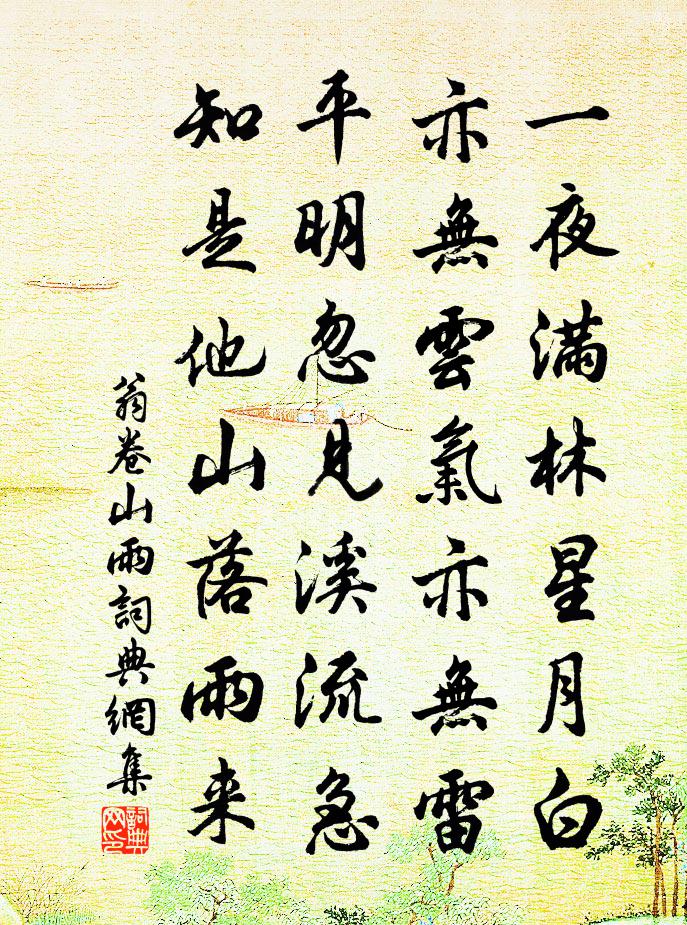 一夜滿林星月白
亦無雲氣亦無雷
平明忽見溪流急
知是他山落雨来
翁卷山雨詞典網集
詞典网印